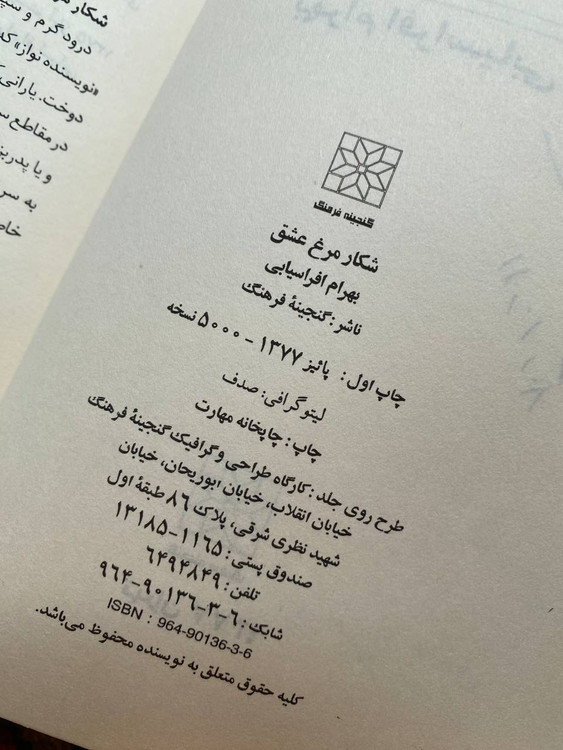 گنجینه فرهنگ
شکار مرغ عشق
بهرام افراسیابی
ناشر: گنجینهٔ فرهنگ
چاپ اول: پائیز ۱۳۷۷ - ۵۰۰۰ نسخه
لیتوگرافی: صدف
چاپ: چاپخانه مهارت
طرح روی جلد: کارگاه طراحی و گرافیک گنجینهٔ فرهنگ
خیابان انقلاب، خیابان ابوریحان، خیابان
شهید نظری شرقی، پلاک ۸۶ طبقهٔ اول
صندوق پستی: ۱۱۶۵-۱۳۱۸۵
تلفن: ۶۴۹۴۸۴۹
شابک: ۶-۳-۹۰۱۳۶-۹۶۴
ISBN : 964-90136-3-6
کلیه حقوق متعلق به نویسنده محفوظ می‌باشد.
شکار
درود گرم و
«نویسنده نواز» که
دوخت. یارانی
در مقاطع
و یا پدر
به سر